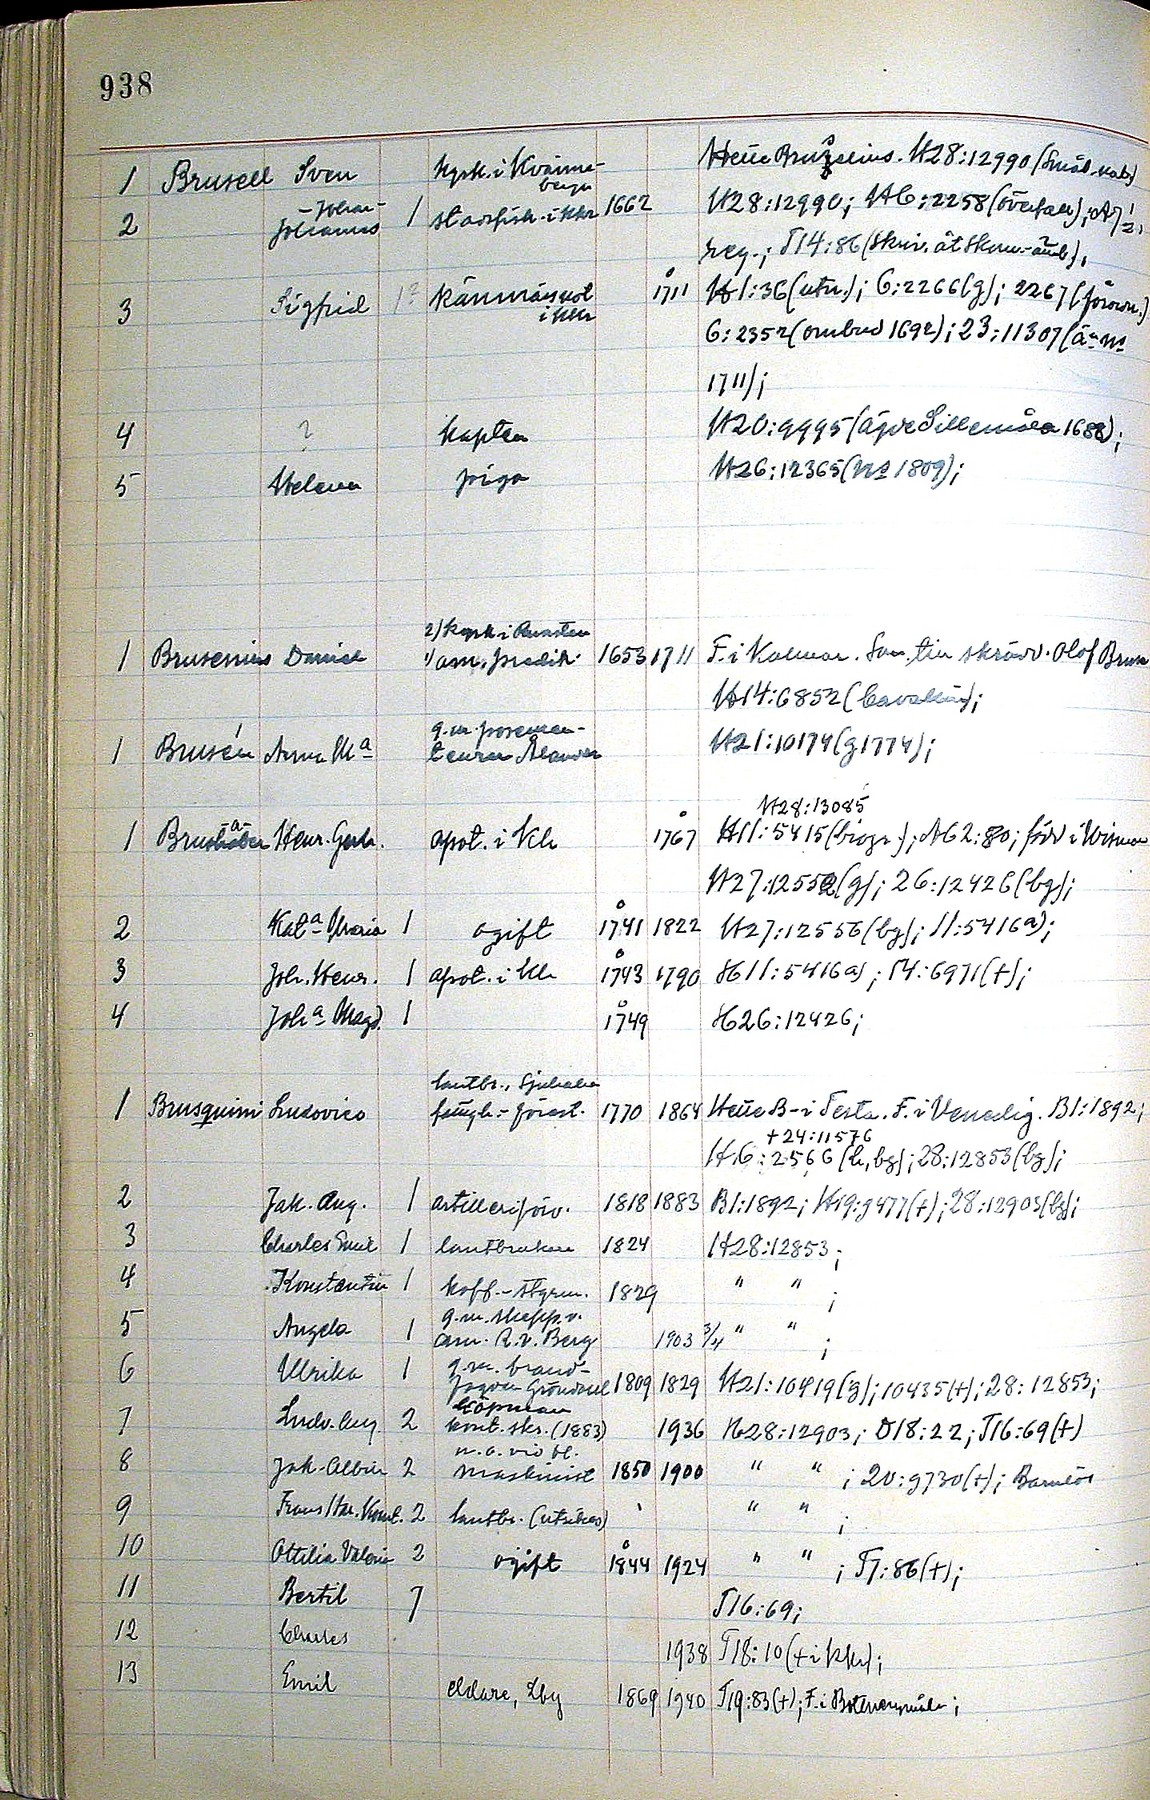 938
1 Brusell Sven kyrkh. i Kvänne-
berga
Hette Bruzelius. H28:12990 (Smål. nat.)
2 -Johan-
Johannes 1 stadsfisk. i Klr 1662 H28:12990; H6:2258 (överfall);
reg.; T14:86 (skriv. åt
3 Sigfrid 1? Rånmäs
i Klr 1711 H1:36 (utn.); 6:2266 (g); 2267
6:2352 (ombud 1692); 23:11307
1711);
4 ? kapten H20:9995 (ägde Sillemåla 1688);
5 Helena piga H26:12365 (1809);
2) kyrkh. i Runsten
1 Brusenius Daniel 1) am. predik. 1653 1711 F. i Kalmar. Son till skrädd. Olof Brun
H14:6852 ;
g.m. possemen-
1 Brusén Anna Ma teuren Ålander H21:10179 (g 1774);
H28:13085
1 -a-
Brushaber Henr. Gerh. apot. i Klr 1767 H11:5415 (biogr.); A62:80; född i Wismar
H27:12552 (g); 26:12426 (bg);
2 Kata Maria 1 ogift 1741 1822 H27:12556 (bg); 11:5416a);
3 Joh. Henr. 1 apot. i Klr 1743 1790 H11:5416a); 14:6971 (+);
4 Joha Magd. 1 1749 H26:12426;
lantbr.,
1 Brusquini Ludovico fängh.-förest. 1770 1864 Hette B-i Testa. F. i Venedig. B1:1892;
+24:11576
H6:2566 (h, bg); 28:12853 (bg);
2 Jak. Aug. 1 artilleriförv. 1818 1883 B1:1892; H19:9477 (+); 28:12903 (bg);
3 Charles Emil 1 lantbrukare 1824 H28:12853;
4 Konstantin 1 koff.-styrm. 1829 " " ;
5 Angela 1 g.m. skepp.o.
am. R.v. Berg 1903 3/4 " " ;
6 Ulrika 1 g.m. brand-
1809 1829 H21:10419 (g); 10435 (+); 28:12853;
7 Ludv. Aug. 2 köpman
kont. skr. (1883) 1936 H28:12903; D18:22; T16:69 (+)
8 Jak. Albin 2 u.o. vid fl.
maskinist 1850 1900 " " ; 20:9730 (+); Barnlös
9 Frans Har. Konst. 2 lantbr. (utrikes) " " ;
10 Ottilia Valeria 2 ogift 1844 1924 " " ; T7:86 (+);
11 Bertil 7 T16:69;
12 Charles 1938 T18:10 (+ i Klr);
13 Emil eldare, Lby 1869 1940 T19:83 (+); F. i ;